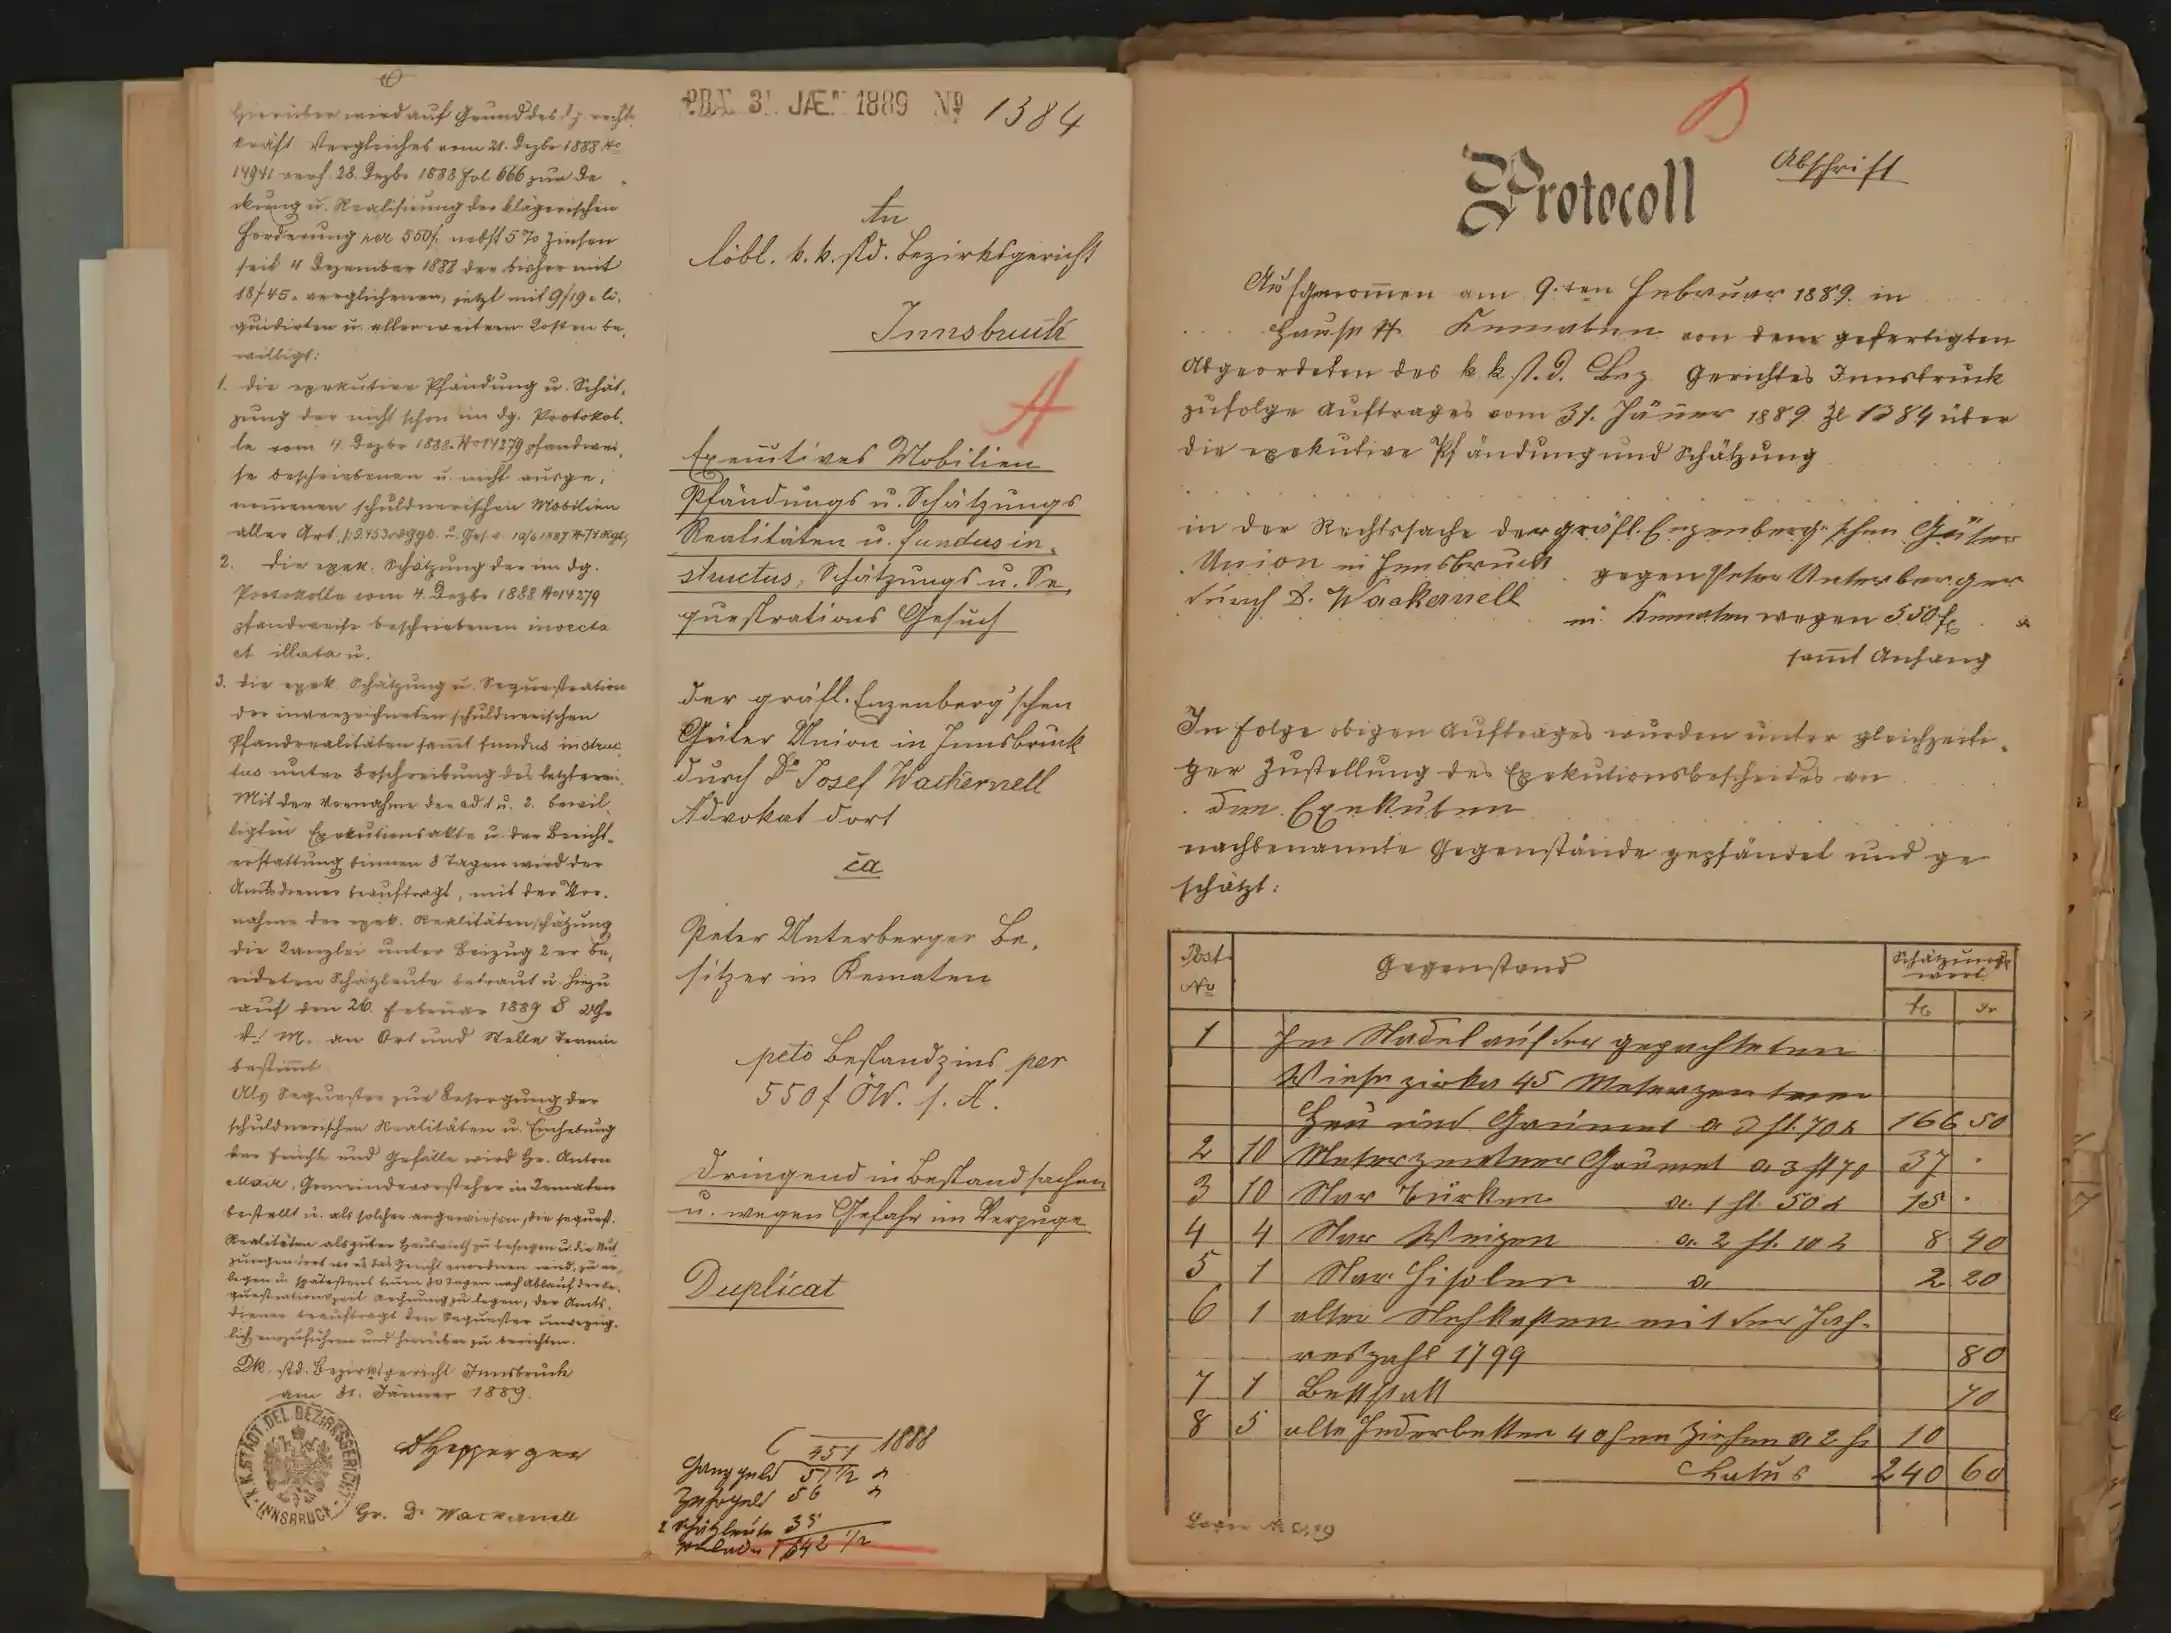 Hierüber wird auf Grund des dg. rechts-
kräft. Vergleiches vom 21. Dezbr 1888 No
14941 verf. 28. Dezbr 1888 Fol 666 zur De-
ckung u. Realisirung der klägerischen
Forderung per 550 f. nebst 5% Zinsen
seit 4 Dezember 1888 der bisher mit
18 f 45 verglichenen, jetzt mit 9 f 19 li-
quidirten u. aller weitern Kosten be-
willigt:
1. die exekutive Pfändung u. Schät-
zung der nicht schon im dg. Protokol-
le vom 4. Dezbr 1888 No 14279 pfandwei-
se beschriebenen u. nicht ausge-
nommenen schuldnerischen Mobilien
aller Art,
2. die exek. Schätzung der im dg.
Protokolle vom 4. Dezbr 1888 No 14279
pfandweise beschriebenen invecta
et illata u.
3. die exek. Schätzung u. Sequestration
der inverzeichneten schuldnerischen
Pfandrealitäten sammt fundus instruc-
tus unter Beschreibung des letzteren.
Mit der Vornahme der ad 1 u. 2. bewil-
ligten Exekutionsakte u. der Bericht-
erstattung binnen 8 Tagen wird der
Amtsdiener beauftragt, mit der Vor-
nahme der exek. Realitätenschätzung
die Kanzlei unter Beizug 2 er be-
eideten Schätzleute betraut u. hiezu
auf den 26. Februar 1889 8 Uhr
V. M. an Ort und Stelle Termin
bestimmt.
Als Sequester zur Besorgung der
schuldnerischen Realitäten u. Einhebung
der Früchte und Gefälle wird Hr. Anton
Mair, Gemeindevorsteher in Kematen
bestellt u. als solcher angewiesen, die sequest.
Realitäten als guter Hauswirth zu besorgen u. die Nut-
zungen dort wo es das Gericht anordnen wird, zu er-
legen u. spätestens binnen 30 Tagen nach Ablauf der Se-
questrationszeit Rechnung zu legen, der Amts-
diener beauftragt den Sequester unverzüg-
lich einzuführen und hierüber zu berichten.
Dk. std. Bezirksgericht Innsbruck
am 31. Jänner 1889.
K.K. STÄDT. DEL. BEZIRKSGERICHT INNSBRUCK
Hr. Dr Wackernell
PRÆ. 31. JÆN. 1889 No 1384
An
löbl. k. k. std. Bezirksgericht
Innsbruck
A
Executives Mobilien
Pfändungs u. Schätzungs
Realitäten u. fundus in-
structus, Schätzungs u. Se-
questrations Gesuch
der gräfl. Enzenberg'schen
Güter Union in Innsbruck
durch Dr Josef Wackernell
Advokat dort
ca
Peter Unterberger Be-
sitzer in Kematen
pcto Bestandzins per
550 f ÖW. s. A.
Dringend in Bestandsachen
u. wegen Gefahr im Verzuge
Duplicat
C 451 1888
Ganggeld 51 1/2
Zehrgeld 56
2 Schätzleute 35
1 f 42 1/2
B
Abschrift
Protocoll
Aufgenommen am 9.ten Februar 1889. in
Hause # Kematen von dem gefertigten
Abgeordeten des k. k. st. d. Bez. Gerichtes Innsbruck
zufolge Auftrages vom 31. Jäner 1889 Zl 1384 über
die exekutive Pfändung und Schätzung
in der Rechtssache der gräfl. Enzenberg'schen Güter
Union in Innsbruck gegen Peter Unterberger
durch Dr. Wackernell
in Kematen wegen 550 f
sammt Anhang
In Folge obigen Auftrages wurden unter gleichzeiti-
ger Zustellung des Exekutionsbescheides an
den Exekuten
nachbenannte Gegenstände gepfändet und ge
schätzt:
Post No Gegenstand Schätzungswert
fl kr
1 Im Stadel auf der gepachteten
Wiese zirka 45 Meterzentner
Heu und Groumet a 3 fl. 70 k 166 50
2 10 Meterzentner Groumet a 3 fl 70 37 .
3 10 Star Türken a. 1 fl. 50 k 15 .
4 4 Star Weizen a. 2 fl. 10 k 8 40
5 1 Star Fisolen a 2 20
6 1 alter Kasten mit der Jah-
reszahl 1799 80
7 1 Bettstatt 70
8 5 alte Federbetten 4 ohne Ziehen a 2 fl 10
Latus 240 60